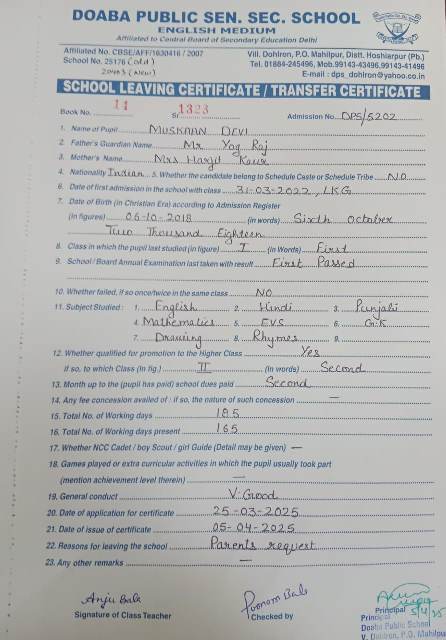 DOABA PUBLIC SEN. SEC. SCHOOL
ENGLISH MEDIUM
Affiliated to Central Board of Secondary Education Delhi
Affiliated No. CBSE/AFF/1630416 / 2007
School No. 25176 (old)
20403 (New)
Vill. Dohlron, P.O. Mahilpur, Distt. Hoshiarpur (Pb.)
Tel. 01884-245496, Mob.99143-43496,99143-41496
E-mail : dps_dohlron@yahoo.co.in
SCHOOL LEAVING CERTIFICATE / TRANSFER CERTIFICATE
Book No. 14 Sr. 1323 Admission No. DPS/5202
1. Name of Pupil MUSKAAN DEVI
2. Father's Guardian Name Mr Yog Raj
3. Mother's Name Mrs. Harjit Kaur
4. Nationality Indian 5. Whether the candidate belong to Schedule Caste or Schedule Tribe NO
6. Date of first admission in the school with class 31-03-2022, LKG
7. Date of Birth (in Christian Era) according to Admission Register
(in figures) 06-10-2018 (in words) Sixth October
Two Thousand Eighteen
8. Class in which the pupil last studied (in figure) I (in Words) First
9. School / Board Annual Examination last taken with result First Passed
10. Whether failed, if so once/twice in the same class NO
11. Subject Studied : 1. English 2. Hindi 3. Punjabi
4. Mathematics 5. EVS 6. G.K
7. Drawing 8. Rhymes 9.
12. Whether qualified for promotion to the Higher Class Yes
if so, to which Class (in fig.) II (in words) Second
13. Month up to the (pupil has paid) school dues paid Second
14. Any fee concession availed of : if so, the nature of such concession —
15. Total No. of Working days 185
16. Total No. of Working days present 165
17. Whether NCC Cadet / boy Scout / girl Guide (Detail may be given) —
18. Games played or extra curricular activities in which the pupil usually took part
(mention achievement level therein) —
19. General conduct V. Good
20. Date of application for certificate 25-03-2025
21. Date of issue of certificate 05-04-2025
22. Reasons for leaving the school Parents request
23. Any other remarks —
Anju Bala
Signature of Class Teacher
Poonam Bala
Checked by
5/4/25
Principal
Principal
Doaba Public School
V. Dohlron, P.O. Mahilpur